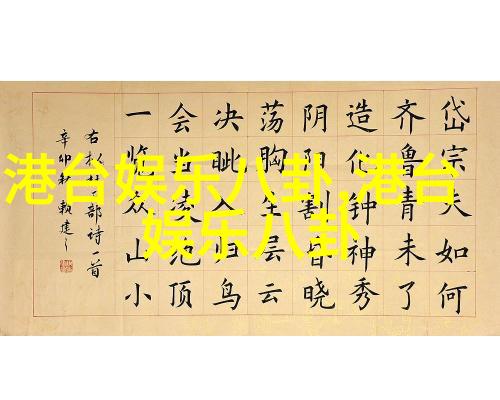 岱宗夫如何
齐鲁青未了
造化钟神秀
阴阳割昏晓
荡胸生层云
决眦入归鸟
会当凌绝顶
一览众山小
右 部诗一首
辛卯秋 赖建
港台娱乐八卦,港台
娱乐八卦